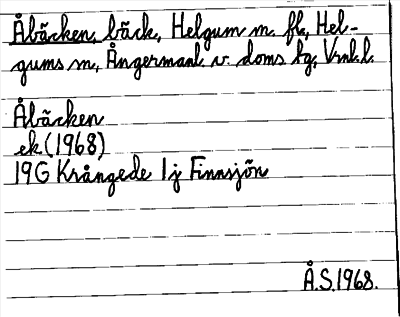 Åbäcken, bäck, Helgum m. fl., Hel-
gums sn, Ångermanl. v. doms. tg, Vnl. l.
Åbäcken
ek (1968)
19G Krångede 1j Finnsjön
Å.S. 1968.